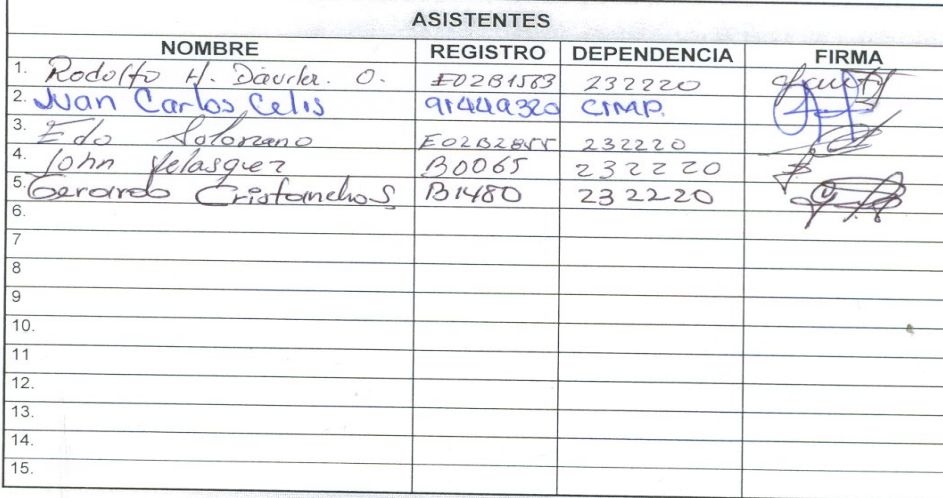 ASISTENTES
NOMBRE REGISTRO DEPENDENCIA FIRMA
1. Rodolfo H. Davila. O. E02B1563 232220
2. Juan Carlos Celis 91449320 CIMP.
3. Edo Solorzano 232220
4. John Velasquez B0065 232220
5. Gerardo Cristancho S B1480 232220
6.
7
8
9
10.
11
12.
13.
14.
15.